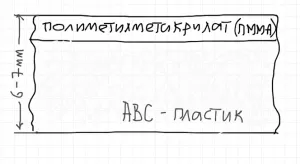 ПОЛИМЕТИЛМЕТИКРИЛАТ (ПММА)
6-7мм
АВС - пластик